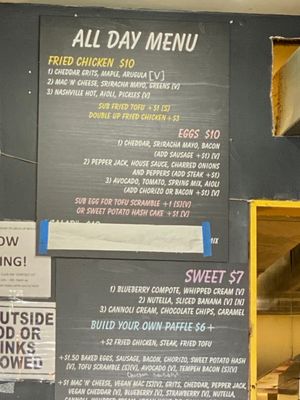 ALL DAY MENU
FRIED CHICKEN $10
1) CHEDDAR GRITS, MAPLE, ARUGULA [V]
2) MAC 'N' CHEESE, SRIRACHA MAYO, GREENS [V]
3) NASHVILLE HOT, AIOLI, PICKLES [V]
SUB FRIED TOFU +$1 [S]
DOUBLE UP FRIED CHICKEN +$3
EGGS $10
1) CHEDDAR, SRIRACHA MAYO, BACON
(ADD SAUSAGE +$1) [V]
2) PEPPER JACK, HOUSE SAUCE, CHARRED ONIONS
AND PEPPERS (ADD STEAK +$1)
3) AVOCADO, TOMATO, SPRING MIX, AIOLI
(ADD CHORIZO OR BACON +$1) [V]
SUB EGG FOR TOFU SCRAMBLE +1 [S][V]
OR SWEET POTATO HASH CAKE +$1 [V]
MIX
SWEET $7
1) BLUEBERRY COMPOTE, WHIPPED CREAM [V]
2) NUTELLA, SLICED BANANA [V] [N]
3) CANNOLI CREAM, CHOCOLATE CHIPS, CARAMEL
BUILD YOUR OWN PAFFLE $6+
+$2 FRIED CHICKEN, STEAK, FRIED TOFU
+$1.50 BAKED EGGS, SAUSAGE, BACON, CHORIZO, SWEET POTATO HASH
[V], TOFU SCRAMBLE [S][V], AVOCADO [V], TEMPEH BACON [S][V]
+$1 MAC 'N' CHEESE, VEGAN MAC [S][V], GRITS, CHEDDAR, PEPPER JACK,
VEGAN CHEDDAR [V], BLUEBERRY [V], STRAWBERRY [V], NUTELLA,
OW
ING!
OUTSIDE
OD OR
INKS
OWED